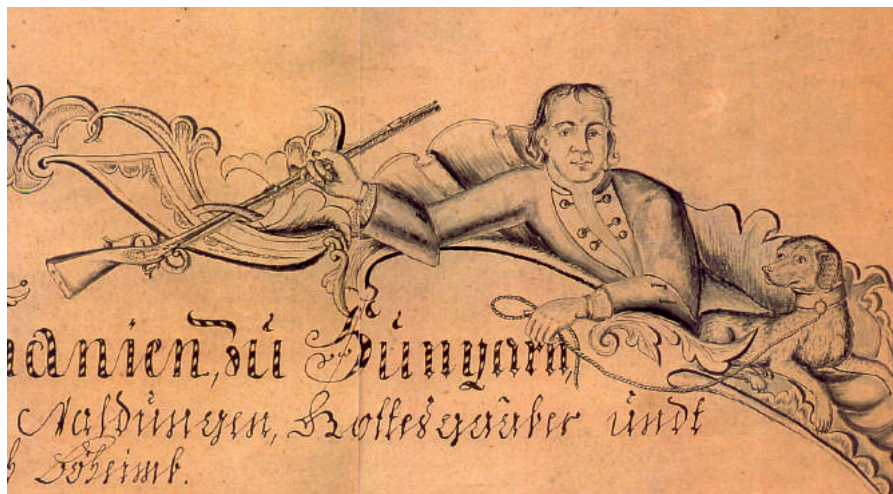 anien, zü Hüngarn,
Waldüngen, Gottesgaaber ündt
h Böheimb.